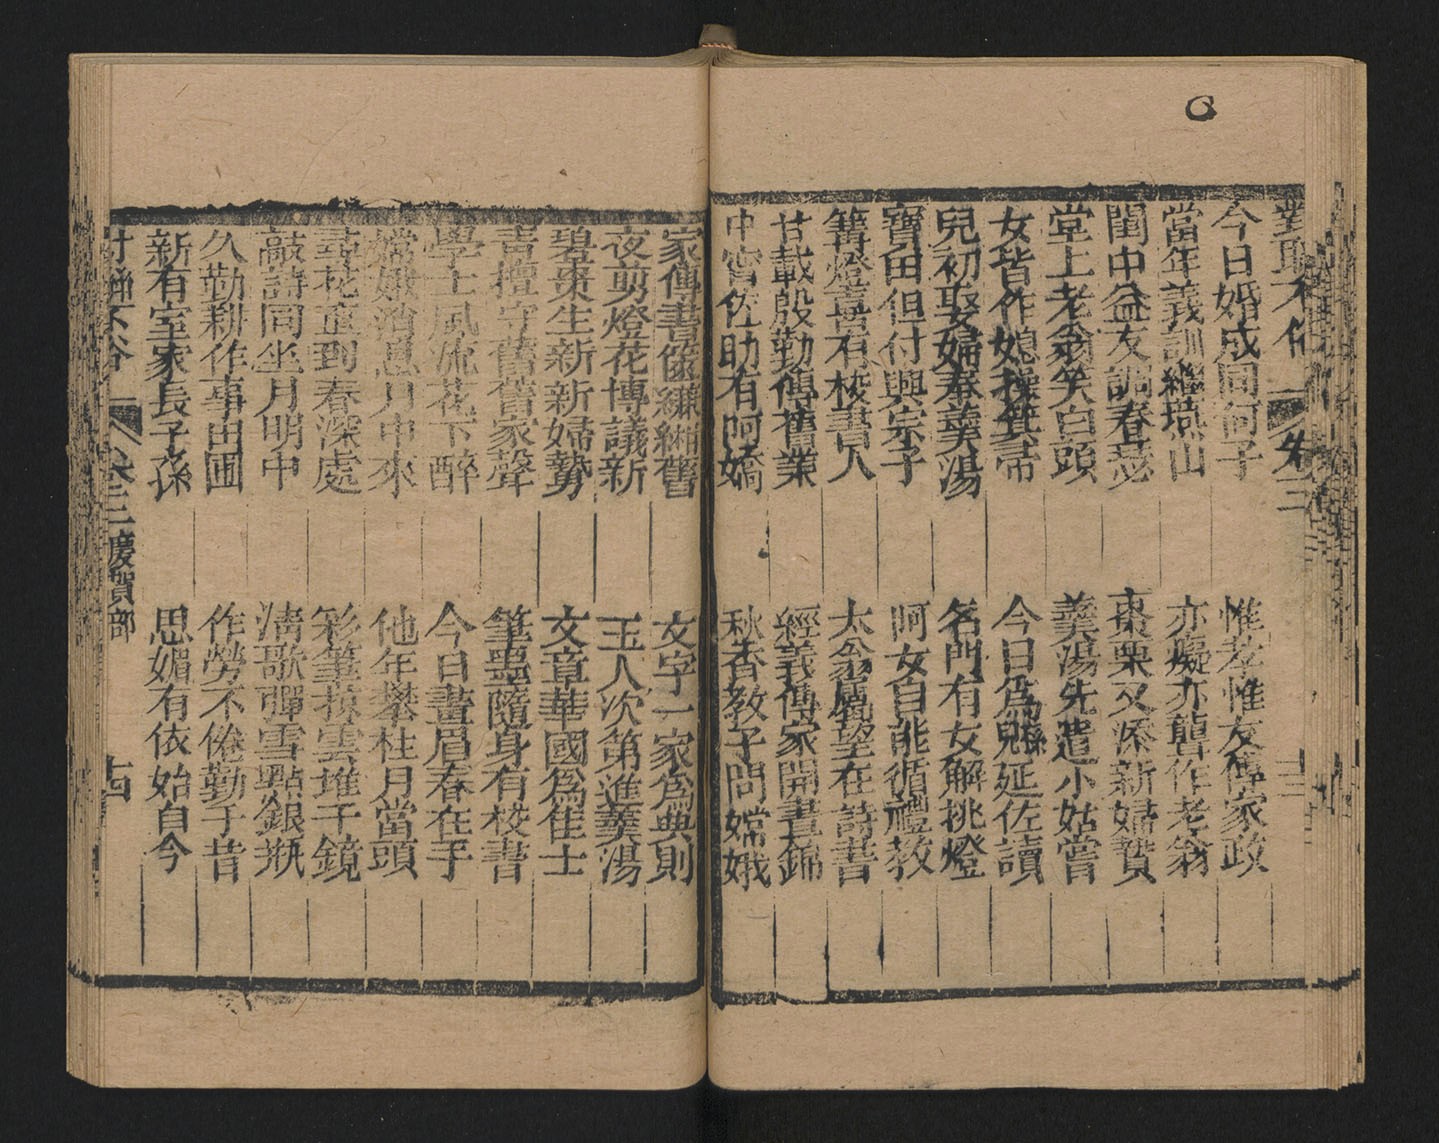 對聯不俗 卷三
今日婚成同何子 惟孝惟友傳家政
當年義訓繼塗山 亦癡亦聾作老翁
閨中益友調春瑟 棗栗又添新婦贄
堂上老翁笑白頭 羹湯先遣小姑嘗
女皆作媳操箕帚 今日爲兒延佐讀
兒初娶婦奉羹湯 名門有女解挑燈
寶田但付與宗子 阿女自能循禮教
篝燈喜有校書人 太翁屬望在詩書
廿載殷勤傳舊業 經義傳家開晝錦
中宵佐助有阿嬌 秋香教子問嫦娥
家傳書簏縹緗舊 文字一家爲典則
夜剪燈花博議新 玉人次第進羹湯
碧棗生新新婦贄 文章華國爲佳士
青檀守舊舊家聲 筆墨隨身有校書
學士風流花下醉 今日畫眉春在手
嫦娥消息月中來 他年攀桂月當頭
尋花直到春深處 彩筆掠雲堆千鏡
敲詩同坐月明中 清歌彈雪點銀瓶
久勤耕作事田圃 作勞不倦勤于昔
新有室家長子孫 思媚有依始自今
對聯不俗 卷三 慶賀部 十四